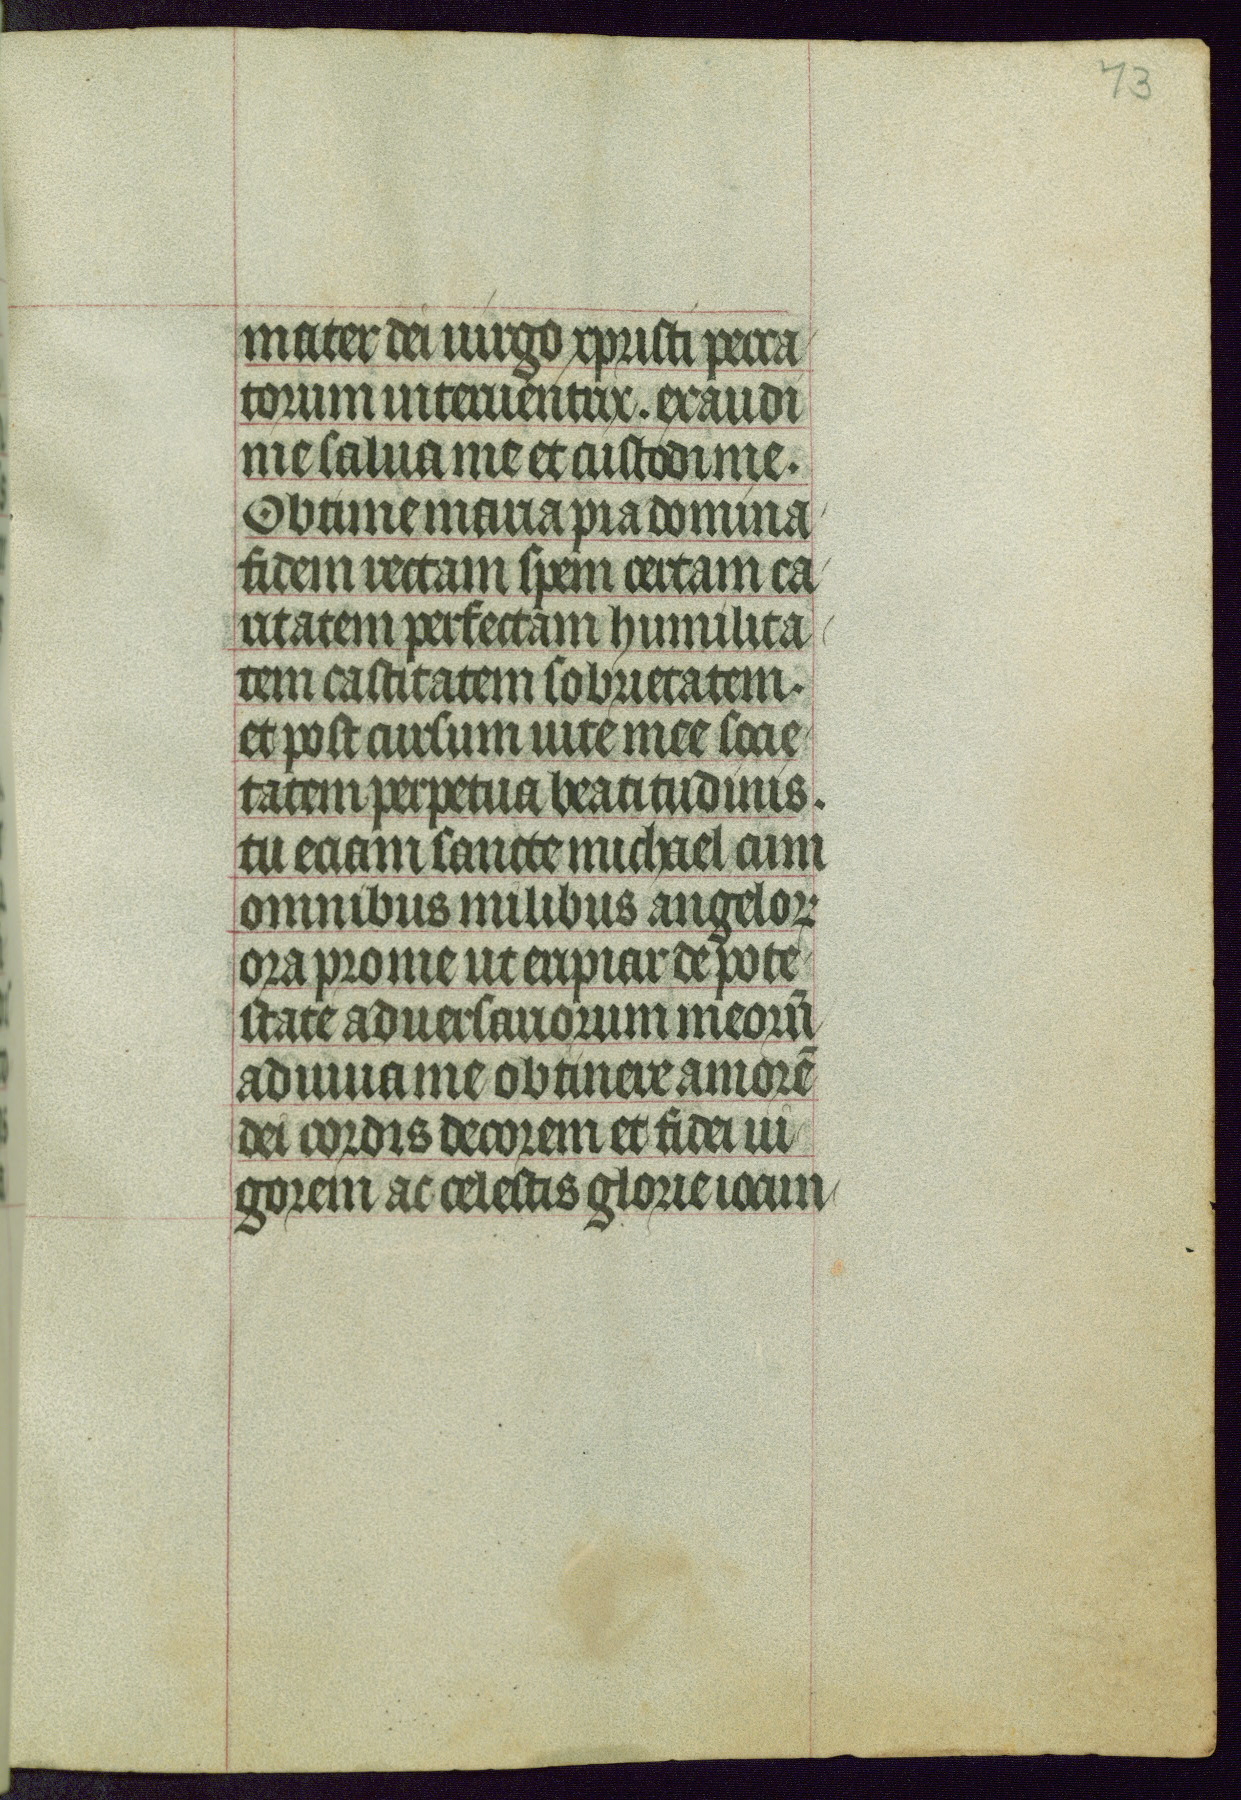 73
mater dei uirgo xpristi pecca
torum interuentrix. exaudi
me salua me et custodi me.
Obtine maria pia domina
fidem rectam spem certam ca
ritatem perfectam humilita
tem castitatem sobrietatem.
et post cursum uite mee socie
tatem perpetua beatitudinis.
tu eciam sancte michael cum
omnibus milibus angeloꝝ
ora pro me ut eripiar de pote
state aduersariorum meorū
adiuua me obtinere amorē
dei cordis decorem et fidei ui
gorem ac celestis glorie iocun